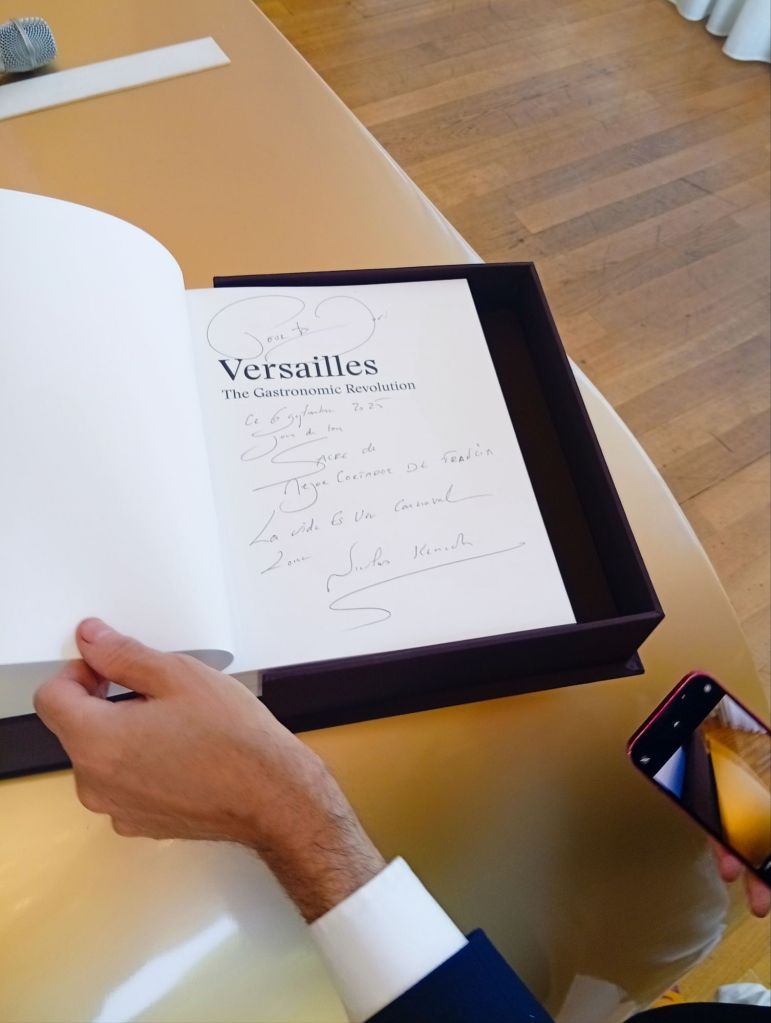 Pour
Versailles
The Gastronomic Revolution
Ce 6 septembre 2025
Jour de ton
Sacre de
Mejor Cortador DE FRANCIA
La vida Es Un Carnaval
Nicolas